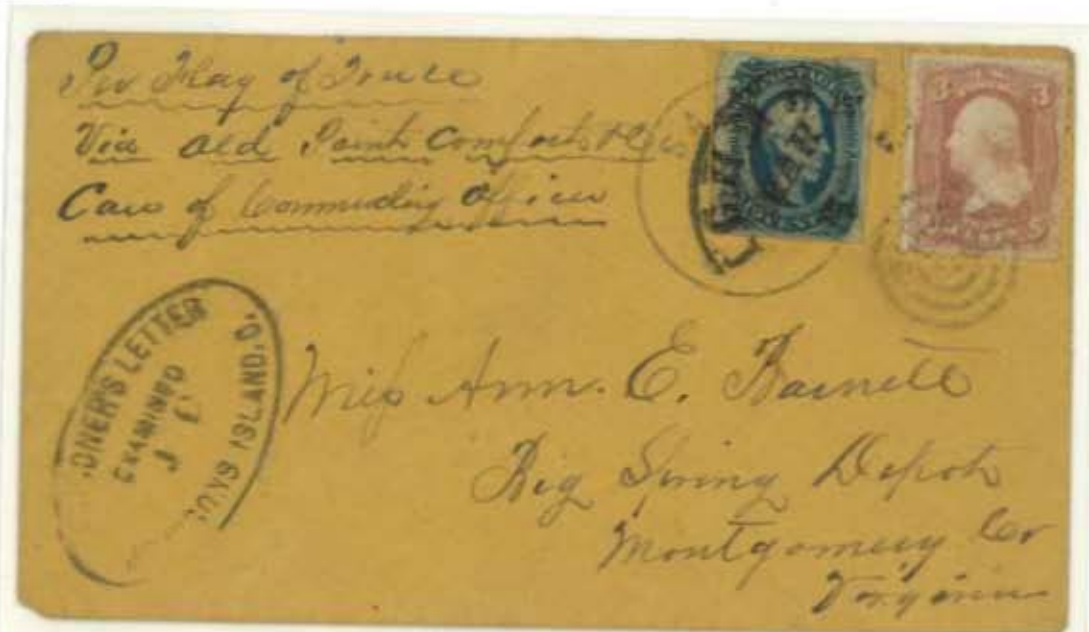 Per Flag of Truce
Via Old Point Comfort
Care of Commuding Officer
3 3
MAR
ONER'S LETTER
EXAMINED
SLAND, O.
Miss Ann. E. Barnett
Big Spring Depot
Montgomery Co
Virginia